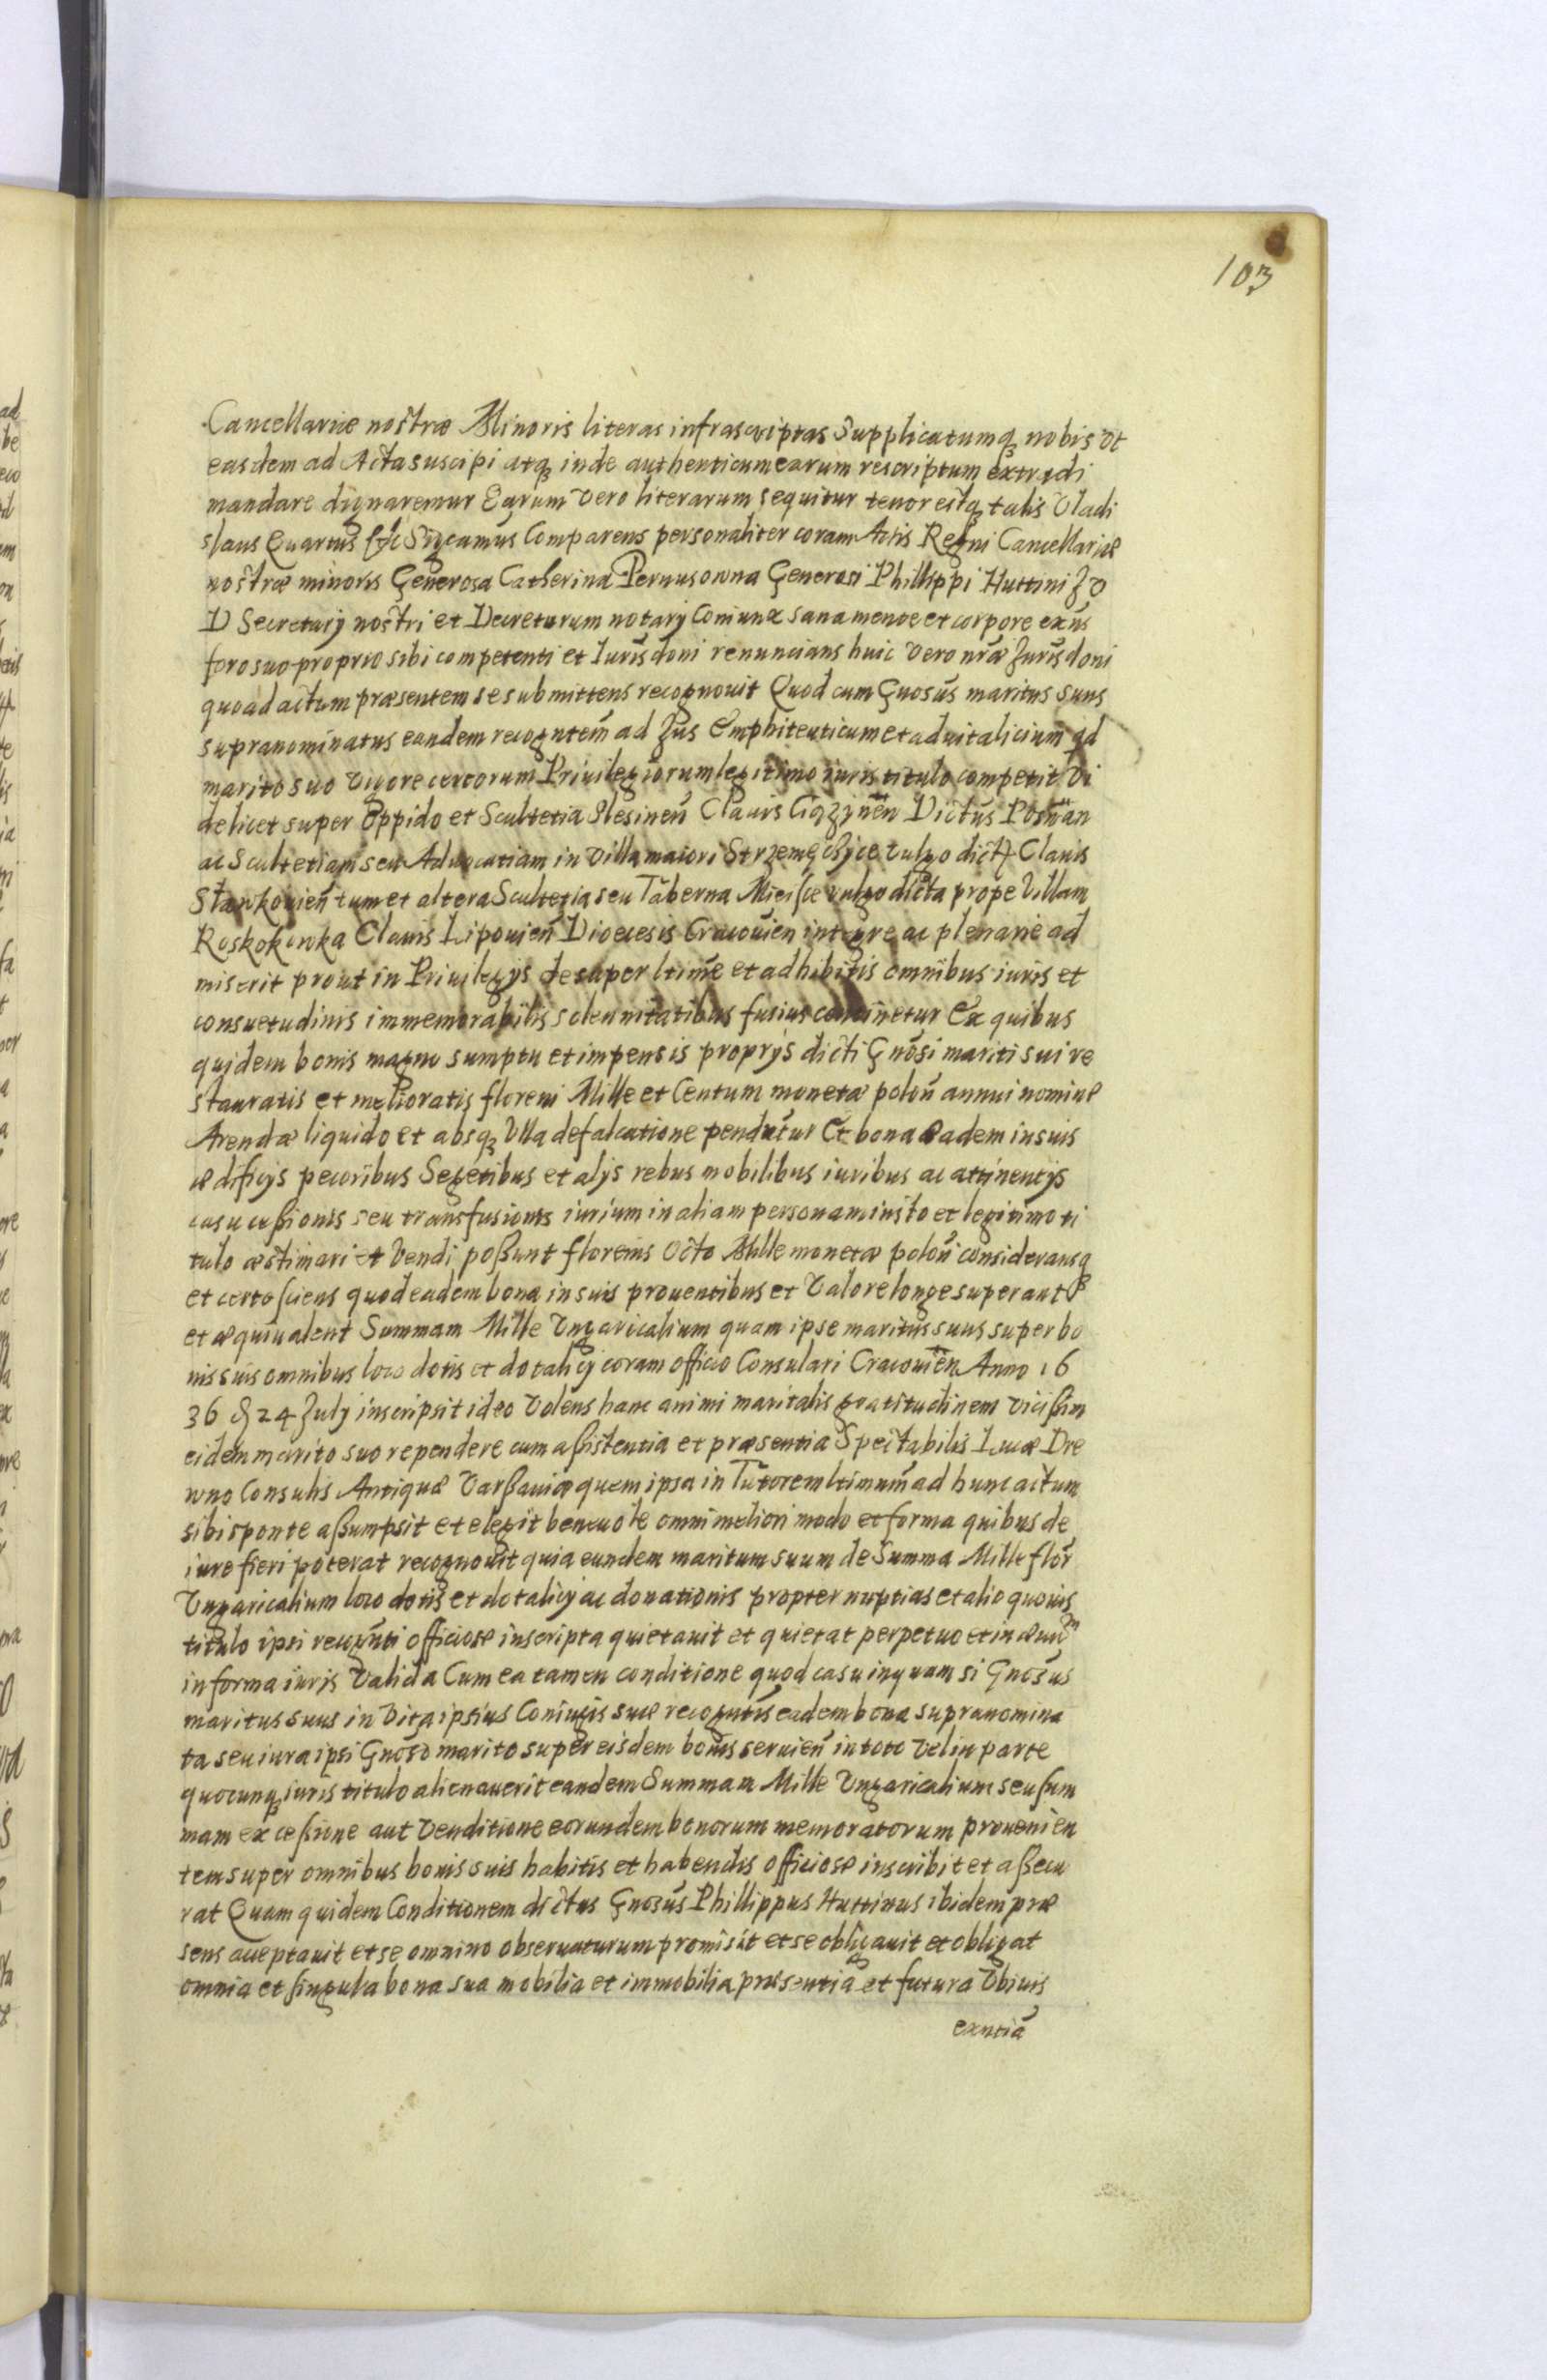 103
Cancellariæ nostræ Minoris literas infrascriptas Supplicatumq nobis Vt
easdem ad Acta suscipi atq inde authenticum earum rescriptum extradi
mandare dignaremur Earum Vero literarum sequitur tenor estq talis Vladi
slaus Quartus Significamus Comparens personaliter coram Actis Regni Cancellariæ
nostræ minoris Generosa Catherina Pernusowna Generosi Phillippi Huttini J V
D Secretarij nostri et Decretorum notarij Coniunx sana mente et corpore exñs
foro suo proprio sibi competenti et Jurisdoni renuncians huic Vero nræ Jurisdoni
quo ad actum præsentem se submittens recognouit Quod cum Gnosus maritus suus
supranominatus eandem recogntem ad Jus Emphiteuticum et aduitalicium qd
marito suo Vigore certorum Priuilegiorum legitimo iuris titulo competit Vi
delicet super Oppido et Scultetia Slesinen Clauis Ciązynen Dictus Posnan
ac Scultetiam seu Aduocatiam in Villa maiori Strzemęszyce Vulgo dict Clauis
Slawkouien tum et altera Scultetia seu Taberna Mieisce vulgo dicta prope Villam
Roskokowka Clauis Lipouien Dioecesis Cracouien integre ac plenarie ad
miserit prout in Priuilegijs desuper ltime et adhibitis omnibus iuris et
consuetudinis immemorabilis solennitatibus fusius continetur Ex quibus
quidem bonis magno sumptu et impensis proprijs dicti Gnosi mariti sui re
stauratis et melioratis floreni Mille et Centum monetæ polon annui nomine
Arendæ liquido et absq Vlla defalcatione pendutur Et bona eadem in suis
ædificijs pecoribus Segetibus et alijs rebus mobilibus iuribus ac attinentijs
casu cessionis seu transfusionis iurium in aliam personam iusto et legitimo ti
tulo æstimari et Vendi possunt florenis Octo Mille monetæ polon consideransq
et certo sciens quod eadem bona in suis prouentibus et Valore longe superant
et æquiualent Summam Mille Vngaricalium quam ipse maritus suus super bo
nis suis omnibus loco dotis et dotalicij coram officio Consulari Cracouien Anno 16
36 d 24 July inscripsit ideo Volens hanc animi maritalis gratitudinem Vicissim
eidem marito suo rependere cum assistentia et præsentia Spectabilis Lucæ Dre
wno Consulis Antiquæ Varssauiæ quem ipsa in Tutorem ltimum ad hunc actum
sibi sponte assumpsit et elegit beneuole omni meliori modo et forma quibus de
iure fieri poterat recognouit quia eundem maritum suum de Summa Mille flor
Vngaricalium loco dotis et dotalicij ac donationis propter nuptias et alio quouis
titulo ipsi recognti officiose inscripta quietauit et quietat perpetuo et in æuum
in forma iuris Valida Cum ea tamen conditione quod casu inquam si Gnosus
maritus suus in Vita ipsius Coniugis suæ recogntis eadem bona supranomina
ta seu iura ipsi Gnoso marito super eisdem bonis seruien in toto Vel in parte
quocunq iuris titulo alienauerit eandem Summam Mille Vngaricalium seu sum
mam ex cessione aut Venditione eorundem bonorum memoratorum prouenien
tem super omnibus bonis suis habitis et habendis officiose inscribit et assecu
rat Quam quidem Conditionem dictus Gnosus Phillippus Huttinus ibidem præ
sens acceptauit et se omnino obseruaturum promisit et se obligauit et obligat
omnia et singula bona sua mobilia et immobilia præsentia et futura Vbiuis
exntia